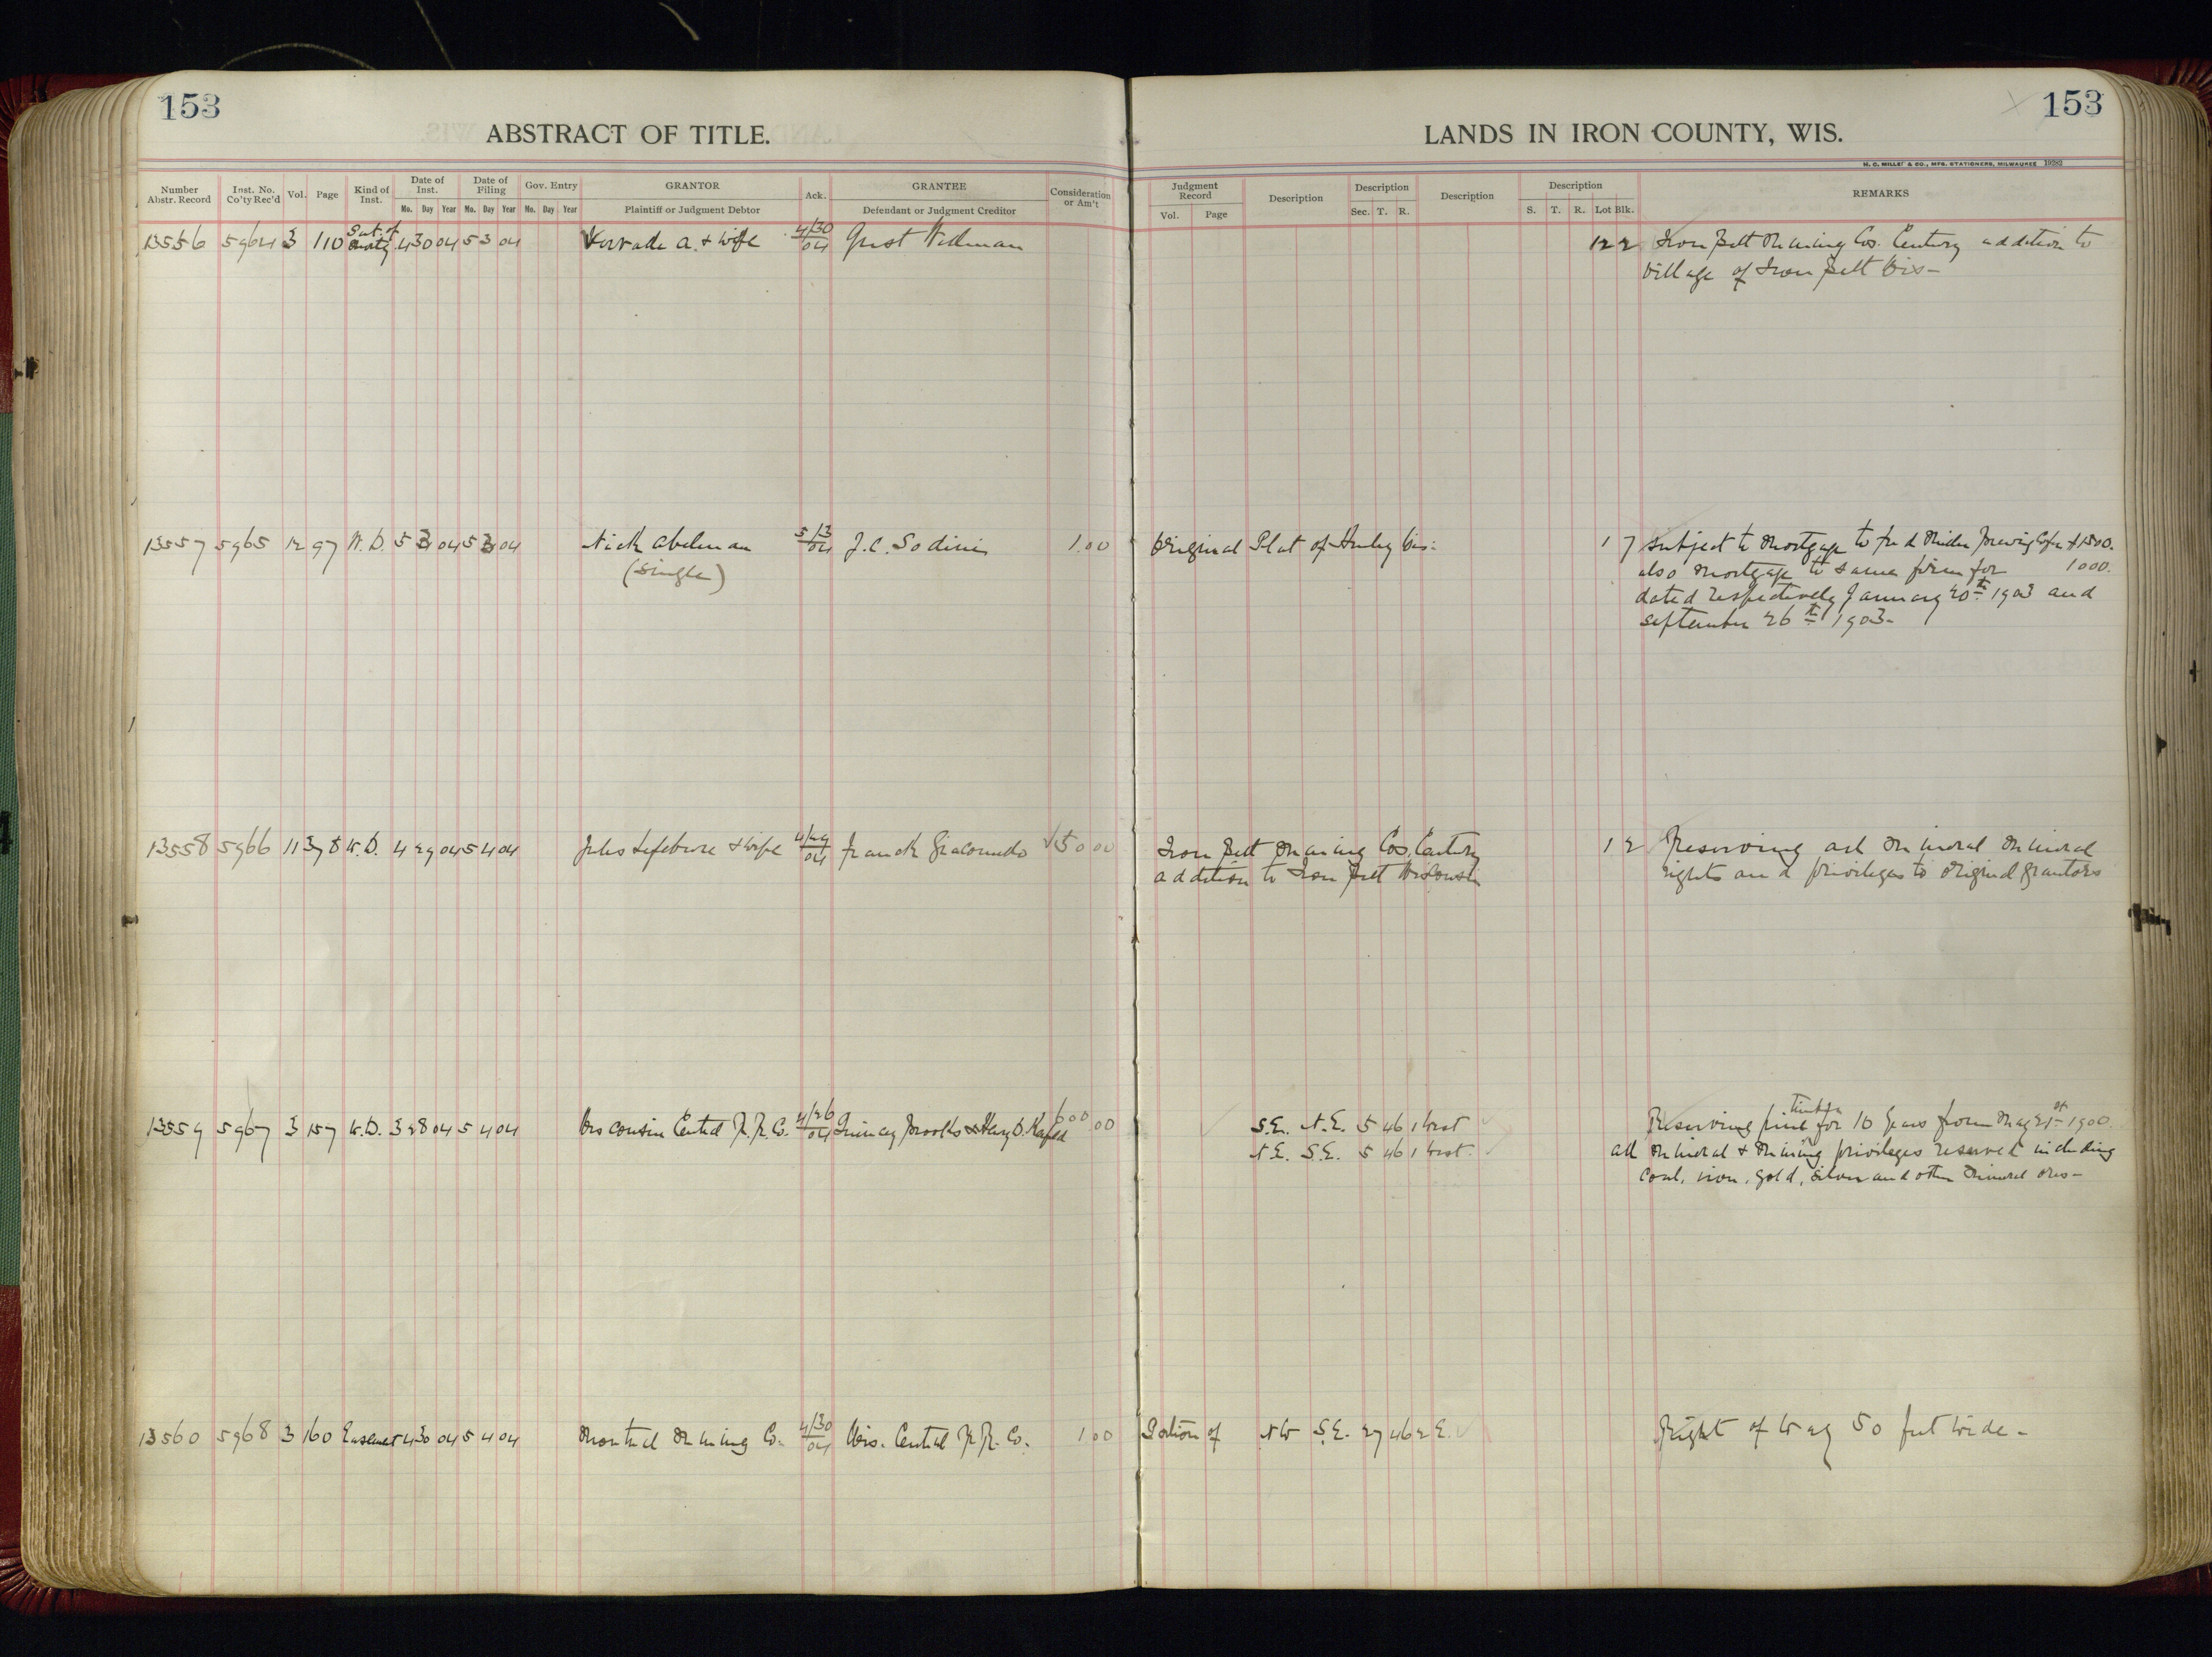 153
ABSTRACT OF TITLE.
Number Abstr. Record Inst. No. Co'ty Rec'd Vol. Page Kind of Inst. Date of Inst. Date of Filing Gov. Entry GRANTOR Ack. GRANTEE Consideration or Am't
Mo. Day Year Mo. Day Year Mo. Day Year Plaintiff or Judgment Debtor Defendant or Judgment Creditor
13556 5964 3 110 Sat. of Mortg 4 30 04 5 3 04 A. & wife 4/30 04 Gust
13557 5965 12 97 W.D. 5 3 04 5 3 04 Nick Abelman 5/3 04 J.C. Sodini 1.00
(single)
13558 5966 11 378 W.D. 4 29 04 5 4 04 Jules Lefebvre & wife 4/29 04 Franck Giacomido 150 00
13559 5967 3 157 W.D. 3 28 04 5 4 04 Wisconsin Central R.R. Co. 4/26 04 Quincy Brooks & Henry D. 600 00
13560 5968 3 160 Easement 4 30 04 5 4 04 Montreal Mining Co. 4/30 04 Wis. Central R.R. Co. 1 00
153
LANDS IN IRON COUNTY, WIS.
H. C. MILLER & CO., MFG. STATIONERS, MILWAUKEE 19282
Judgment Record Description Description Description Description REMARKS
Vol. Page Sec. T. R. S. T. R. Lot Blk.
12 2 Iron Belt Mining Cos. Century addition to
village of Iron Belt Wis-
Original Plat of Hurley Wis. 1 7 Subject to Mortgage to Fred Miller Brewing Co for $1500.
also mortgage to same firm for 1000.
dated respectively January 20th 1903 and
September 26th 1903-
Iron Belt Mining Cos. Century 1 2 Reserving all mineral mineral
addition to Iron Belt Wisconsin rights and privileges to original grantors
S.E. N.E. 5 46 1 West Reserving pine timber for 10 years from May 21st 1900
N.E. S.E. 5 46 1 West. all mineral & mining privileges reserved including
coal, iron, gold, silver and other mineral ores-
Portion of NW S.E. 27 46 2 E. Right of Way 50 feet wide-